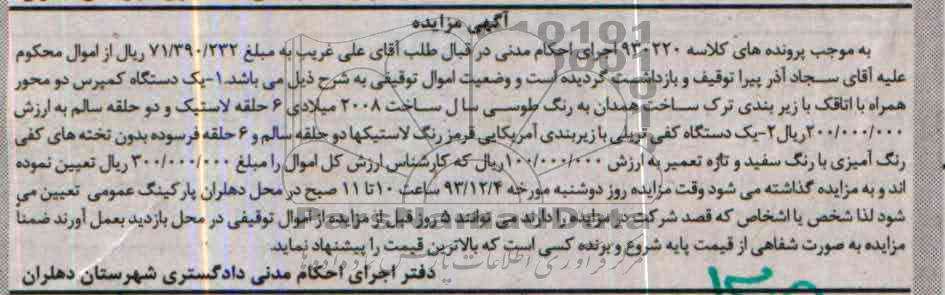 آگهی مزایده
به موجب پرونده های کلاسه ۹۳۰۲۲۰ اجرای احکام مدنی در قبال طلب آقای علی غریب به مبلغ ۷۱/۳۹۰/۲۳۲ ریال از اموال محکوم
علیه آقای سجاد آذر پیرا توقیف و بازداشت گردیده است و وضعیت اموال توقیفی به شرح ذیل می باشد.۱-یک دستگاه کمپرس دو محور
همراه با اتاقک با زیر بندی ترک ساخت همدان به رنگ طوسی سال ساخت ۲۰۰۸ میلادی ۶ حلقه لاستیک و دو حلقه سالم به ارزش
۲۰۰/۰۰۰/۰۰۰ریال ۲-یک دستگاه کفی تریلی با زیربندی آمریکایی قرمز رنگ لاستیکها دو حلقه سالم و ۶ حلقه فرسوده بدون تخته های کفی
رنگ آمیزی با رنگ سفید و تازه تعمیر به ارزش ۱۰۰/۰۰۰/۰۰۰ریال که کارشناس ارزش کل اموال را مبلغ ۳۰۰/۰۰۰/۰۰۰ ریال تعیین نموده
اند و به مزایده گذاشته می شود وقت مزایده روز دوشنبه مورخه ۹۳/۱۲/۴ ساعت ۱۰ تا ۱۱ صبح در محل دهلران پارکینگ عمومی تعیین می
شود لذا شخص یا اشخاص که قصد شرکت در مزایده را دارند می توانند ۵ روز قبل از مزایده از اموال توقیفی در محل بازدید بعمل آورند ضمنا
مزایده به صورت شفاهی از قیمت پایه شروع و برنده کسی است که بالاترین قیمت را پیشنهاد نماید
دفتر اجرای احکام مدنی دادگستری شهرستان دهلران